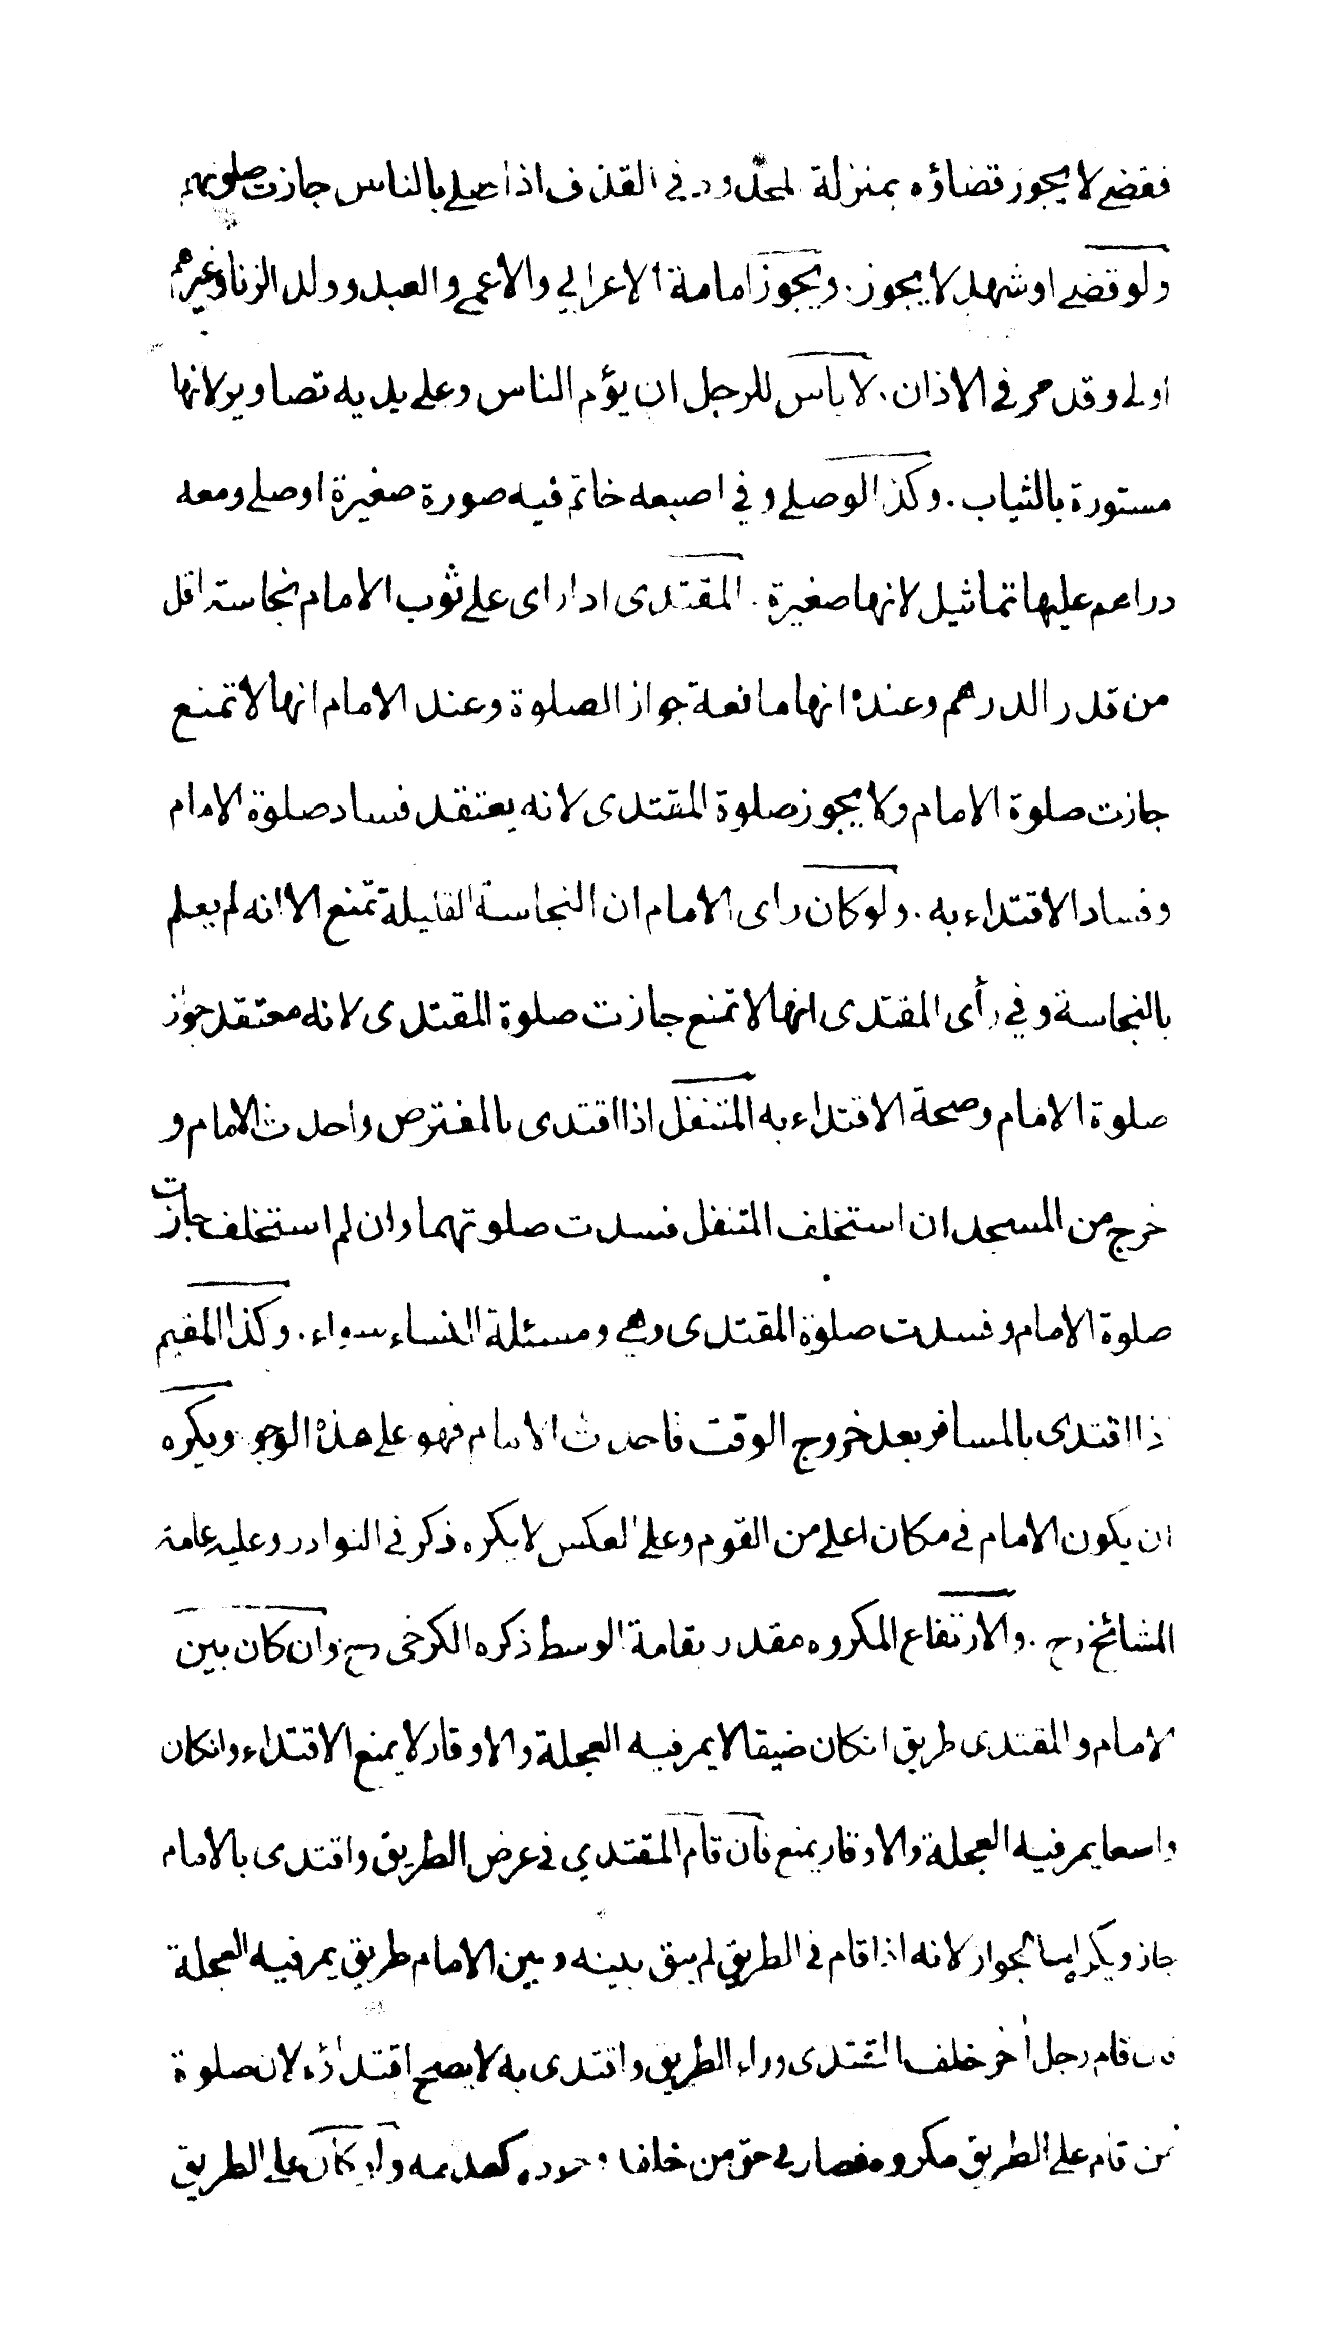 فقضى لا يجوز قضاؤه بمنزلة المحدود في القذف اذا صلى بالناس جازت صلوتهم
ولو قضى او شهد لا يجوز. ويجوز امامة الاعرابي والاعمى والعبد وولد الزنا وغيرهم
اولى وقد مر في الاذان. لا باس للرجل ان يؤم الناس وعلى يديه تصاوير لانها
مستورة بالثياب. وكذا لو صلى وفي اصبعه خاتم فيه صورة صغيرة او صلى ومعه
دراهم عليها تماثيل لانها صغيرة. المقتدى اذا راى على ثوب الامام نجاسة اقل
من قدر الدرهم وعنده انها مانعة جواز الصلوة وعند الامام انها لا تمنع
جازت صلوة الامام ولا يجوز صلوة المقتدى لانه يعتقد فساد صلوة الامام
وفساد الاقتداء به. ولو كان راى الامام ان النجاسة القليلة تمنع الا انه لم يعلم
بالنجاسة وفي رأى المقتدى انها لا تمنع جازت صلوة المقتدى لانه معتقد جواز
صلوة الامام وصحة الاقتداء به المتنفل اذا اقتدى بالمفترض واحدث الامام و
خرج من المسجد ان استخلف المتنفل فسدت صلوتهما وان لم استخلف جازت
صلوة الامام وفسدت صلوة المقتدى وهي ومسئلة النساء سواء. وكذا المقيم
اذا اقتدى بالمسافر بعد خروج الوقت فاحدث الامام فهو على هذه الوجو ويكره
ان يكون الامام في مكان اعلى من القوم وعلى العكس لا يكره ذكر في النوادر وعليه عامة
المشائخ رح. والارتفاع المكروه مقدر بقامة الوسط ذكره الكرخى رح وان كان بين
الامام والمقتدى طريق انكان ضيقا لا يمر فيه العجلة والاوقار لا يمنع الاقتداء وانكان
واسعا يمر فيه العجلة والاوقار يمنع فان قام المقتدي في عرض الطريق واقتدى بالامام
جاز ويكره اما الجواز لانه اذا قام في الطريق لم يبق بينه وبين الامام طريق يمر فيه العجلة
فان قام رجل آخر خلف المقتدى وراء الطريق واقتدى به لا يصح اقتداؤه لان صلوة
من قام على الطريق مكروه فصار في حق من خلفه وجوده كعدمه ولو كان على الطريق